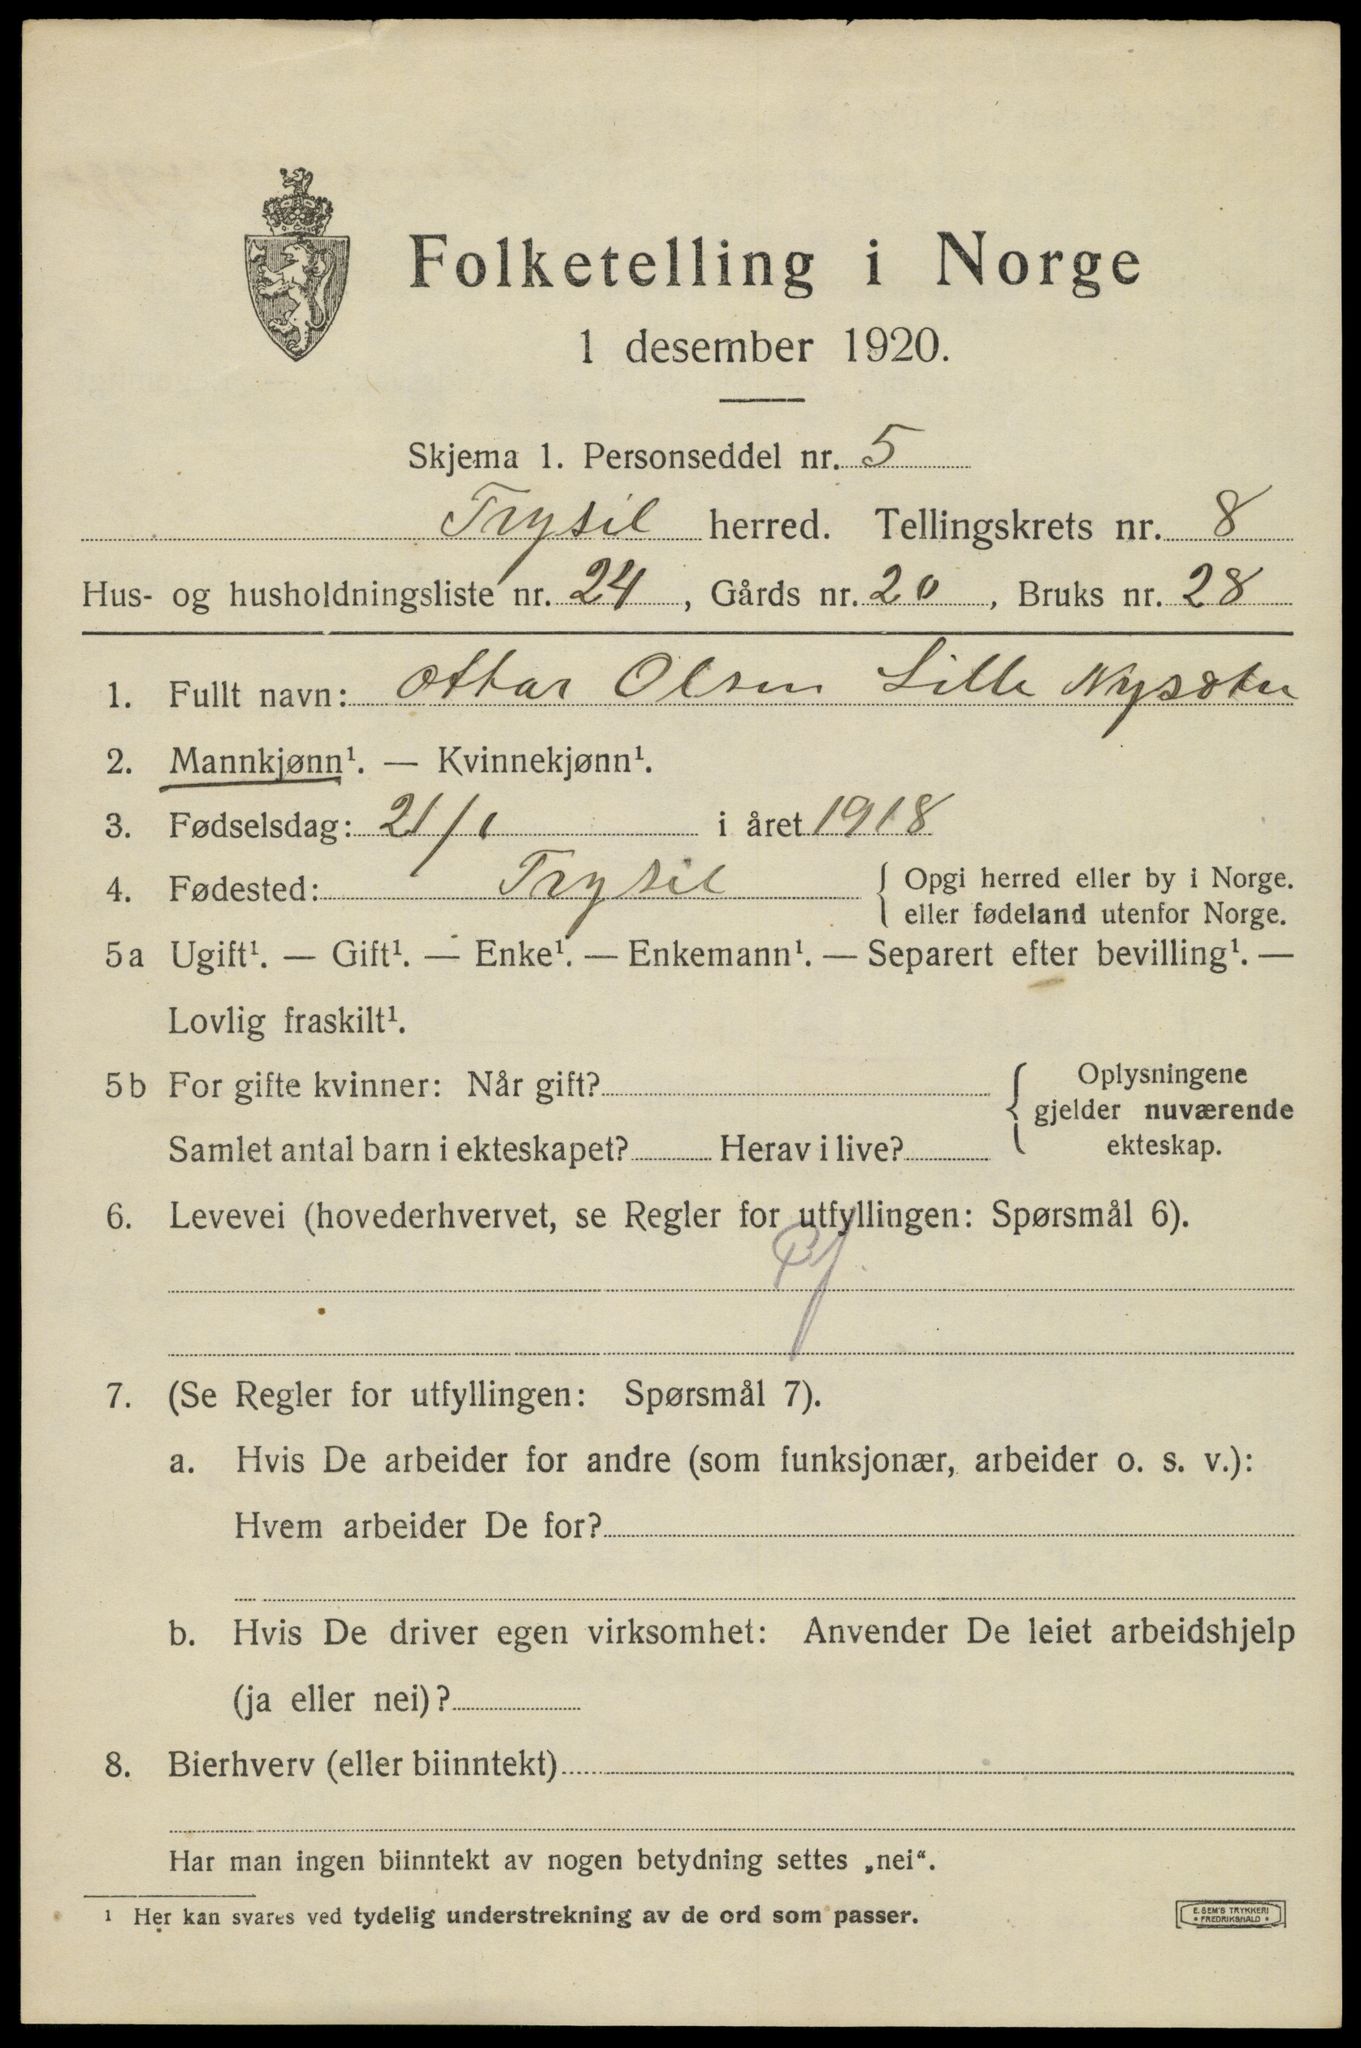 Folketelling i Norge
1 desember 1920.
Skjema 1. Personseddel nr. 5
Trysil herred. Tellingskrets nr. 8
Hus- og husholdningsliste nr. 24, Gårds nr. 20, Bruks nr. 28
1. Fullt navn: Ottar Olsen Lille Nysæter
2. Mannkjønn¹. — Kvinnekjønn¹.
3. Fødselsdag: 21/1 i året 1918
4. Fødested: Trysil { Opgi herred eller by i Norge.
eller fødeland utenfor Norge.
5a Ugift¹. — Gift¹. — Enke¹. — Enkemann¹. — Separert efter bevilling¹. —
Lovlig fraskilt¹.
5b For gifte kvinner: Når gift?
Samlet antal barn i ekteskapet? Herav i live?
Oplysningene
gjelder nuværende
ekteskap.
6. Levevei (hovederhvervet, se Regler for utfyllingen: Spørsmål 6).
7. (Se Regler for utfyllingen: Spørsmål 7).
a. Hvis De arbeider for andre (som funksjonær, arbeider o. s. v.):
Hvem arbeider De for?
b. Hvis De driver egen virksomhet: Anvender De leiet arbeidshjelp
(ja eller nei)?
8. Bierhverv (eller biinntekt)
Har man ingen biinntekt av nogen betydning settes „nei“.
¹ Her kan svares ved tydelig understrekning av de ord som passer.
E. SEM'S TRYKKERI
• FREDRIKSHALD •